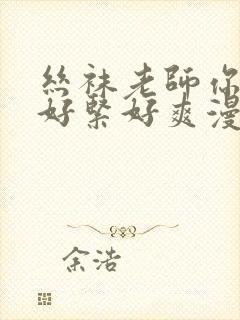 絲袜老師你
好緊好爽漫
余浩